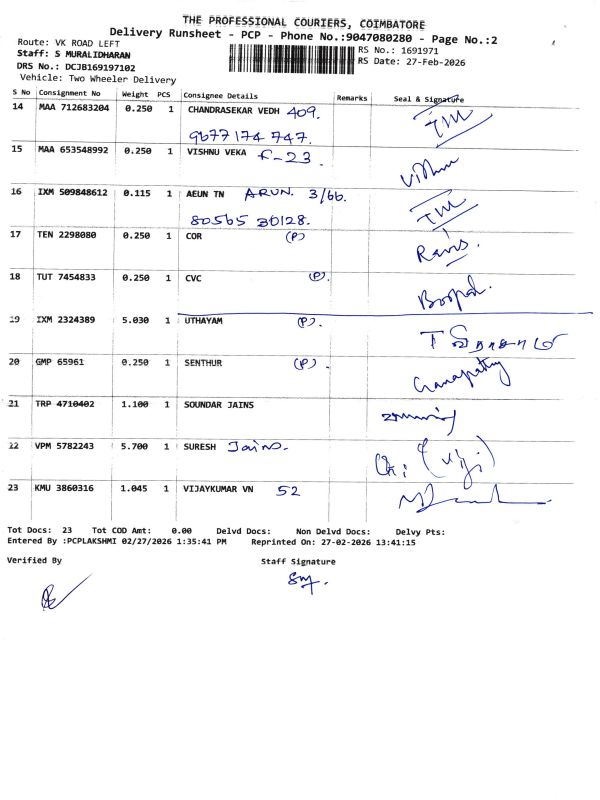 THE PROFESSIONAL COURIERS, COIMBATORE
Delivery Runsheet - PCP - Phone No.:9047080280 - Page No.:2
Route: VK ROAD LEFT
Staff: S MURALIDHARAN
DRS No.: DCJB169197102
Vehicle: Two Wheeler Delivery
RS No.: 1691971
RS Date: 27-Feb-2026
S No Consignment No Weight PCS Consignee Details Remarks Seal & Signature
14 MAA 712683204 0.250 1 CHANDRASEKAR VEDH 409.
9677174 747.
15 MAA 653548992 0.250 1 VISHNU VEKA F-23
16 IXM 509848612 0.115 1 AEUN TN ARUN. 3/66.
80565 30128.
17 TEN 2298080 0.250 1 COR (P)
18 TUT 7454833 0.250 1 CVC (P).
19 IXM 2324389 5.030 1 UTHAYAM (P).
20 GMP 65961 0.250 1 SENTHUR (P). Ganapathy
21 TRP 4710402 1.100 1 SOUNDAR JAINS
22 VPM 5782243 5.700 1 SURESH Jains. (Viji)
23 KMU 3860316 1.045 1 VIJAYKUMAR VN 52
Tot Docs: 23 Tot COD Amt: 0.00 Delvd Docs: Non Delvd Docs: Delvy Pts:
Entered By :PCPLAKSHMI 02/27/2026 1:35:41 PM Reprinted On: 27-02-2026 13:41:15
Verified By Staff Signature